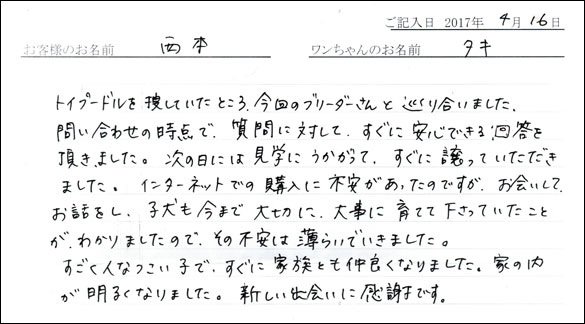 ご記入日 2017年 4月 16日
お客様のお名前 西本 ワンちゃんのお名前 タキ
トイプードルを捜していたところ、今回のブリーダーさんと巡り合いました。
問い合わせの時点で、質問に対して、すぐに安心できる回答を
頂きました。次の日には見学にうかがって、すぐに譲っていただき
ました。インターネットでの購入に不安があったのですが、お会いして
お話をし、子犬も今まで大切に、大事に育てて下さっていたこと
が、わかりましたので、その不安は薄らいでいきました。
すごく人なつこい子で、すぐに家族とも仲良くなりました。家の内
が明るくなりました。新しい出会いに感謝です。